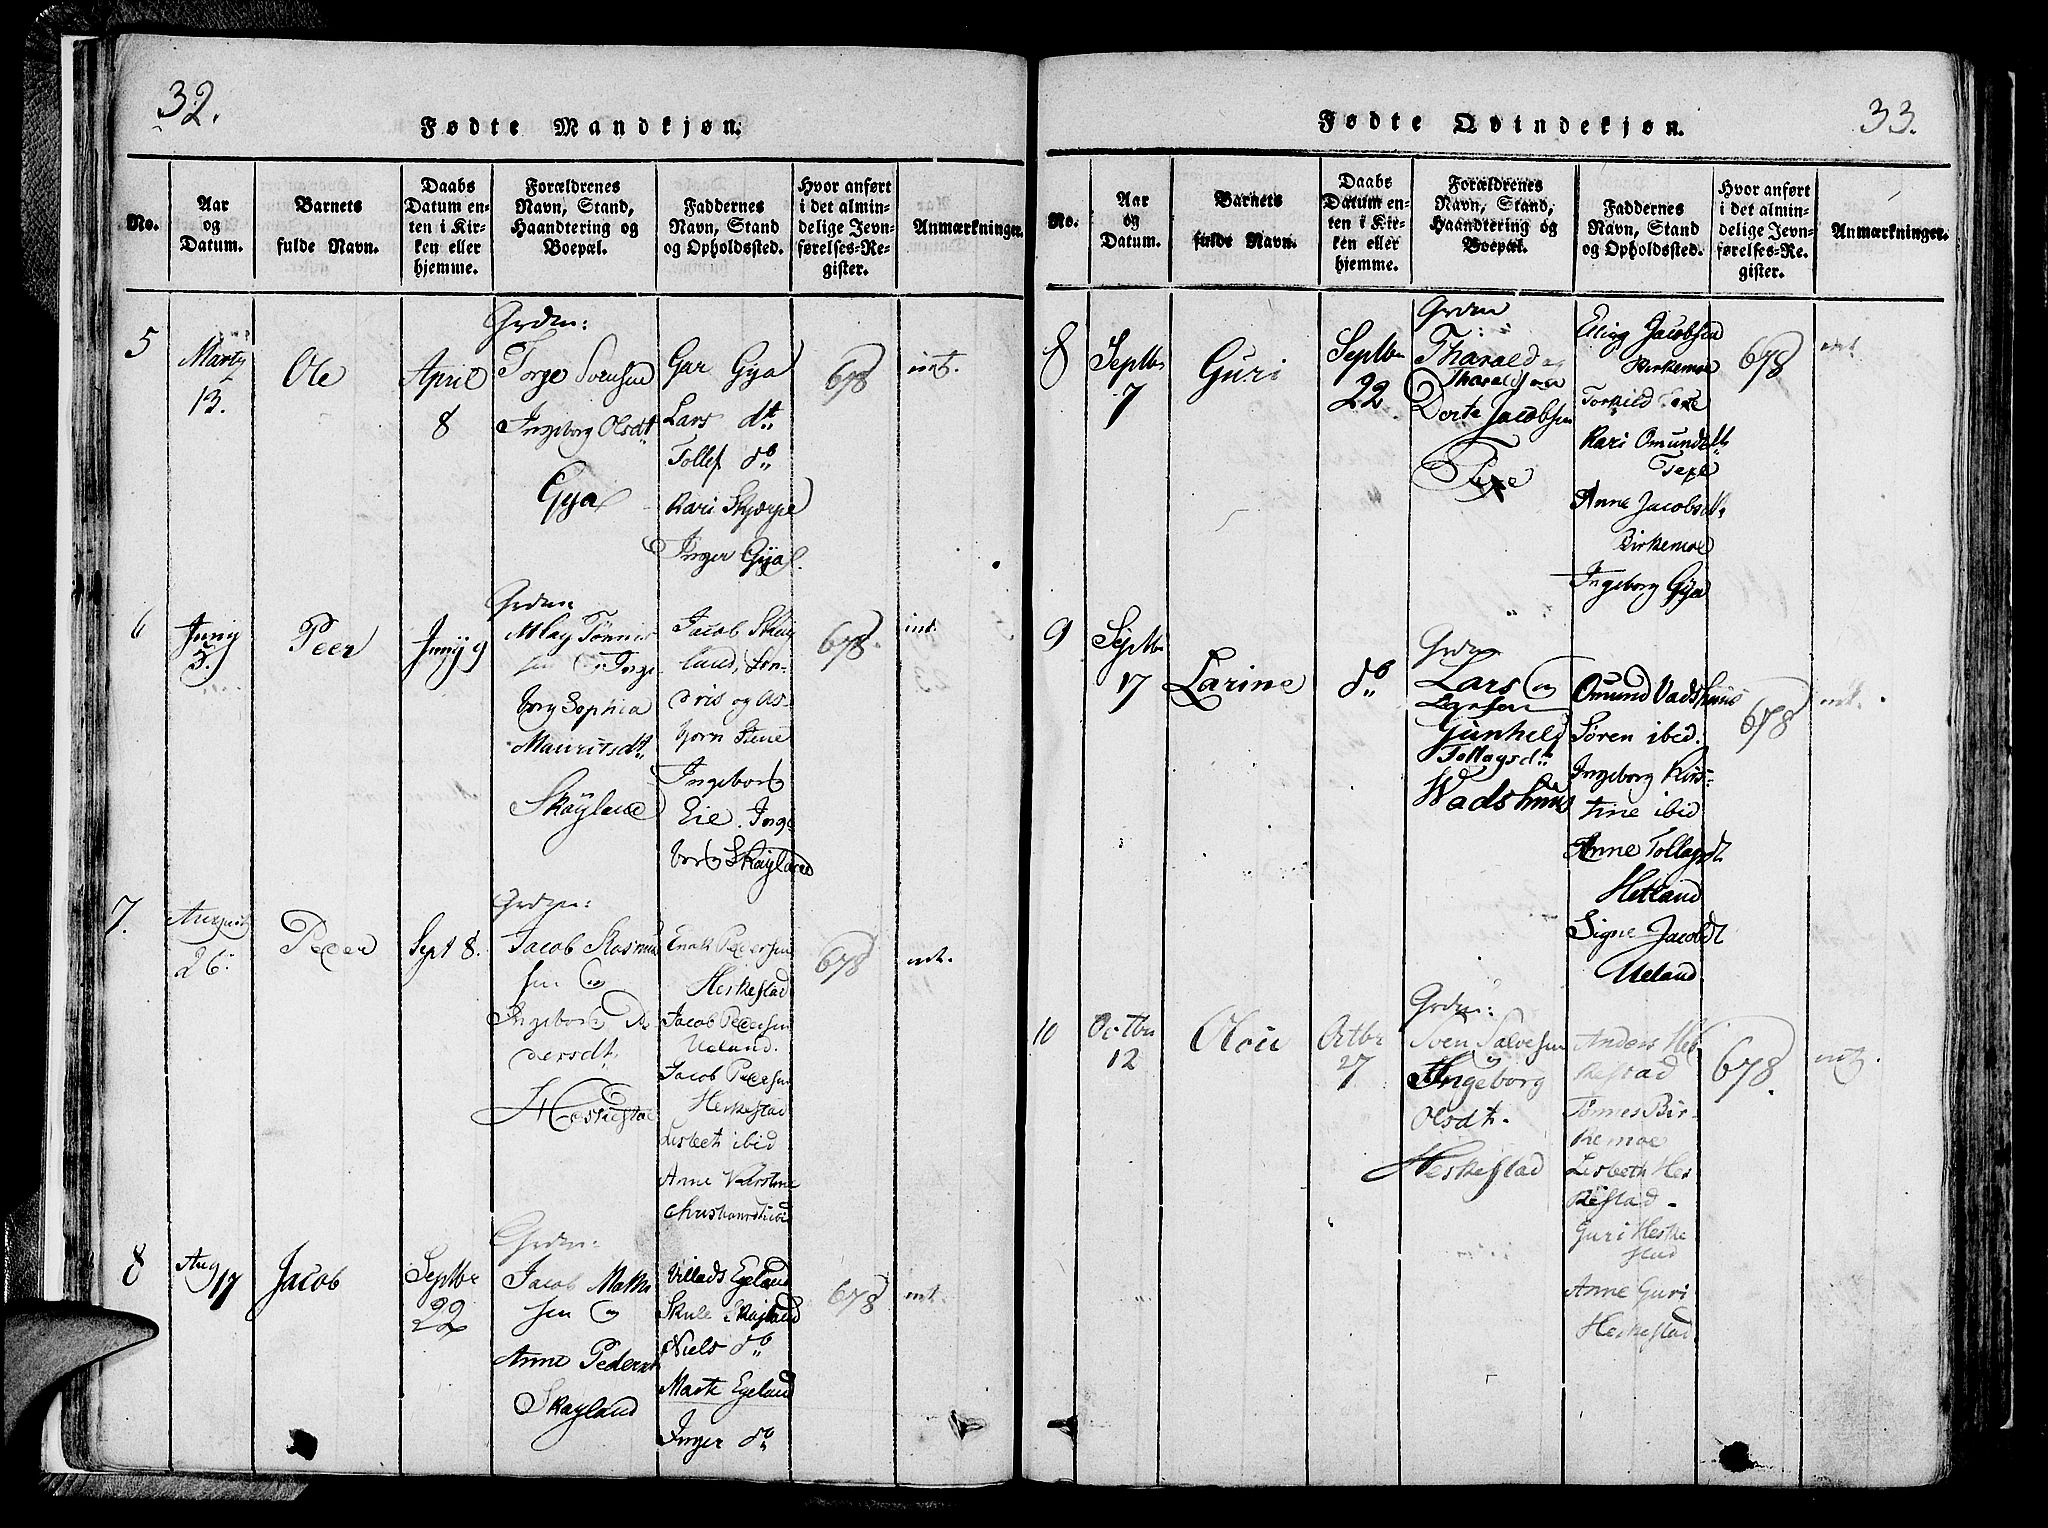 32.
Fødte Mandkjøn.
No.
Aar
og
Datum.
Barnets
fulde Navn.
Daabs
Datum en-
ten i Kir-
ken eller
hjemme.
Forældrenes
Navn, Stand,
Haandtering og
Boepæl.
Faddernes
Navn, Stand
og Opholdssted.
Hvor anført
i det almin-
delige Jevn-
førelses-Re-
gister.
Anmærkninger.
5
Marty
13.
Ole
April
8
Grdm:
Torge Svensen
Ingeborg Olsdt
Gya
Gar Gya
Lars dt
Tollef do
Kari Skjerpe
Inger Gya.
678
int.
6
Juny
5.
Peer
Juny 9
Grdm
Mlay Tønnes
sen og Inge
borg Sophia
Mauritsdt
Skøyland
Jacob Skøy
land,
dris og As-
bjørn Stene
Ingebor
Eie. Inge
borg Skøyland
678.
int.
7.
August
26.
Peder
Sept 8.
Grdm:
Jacob Rasmu
sen og
Ingebor Pe
dersdt.
Heskestad
Enok Pedersen
Heskestad
Jacob Pedersen
Ueland.
Jacob Pedersen
Heskestad
Lisbeth ibid
Anne Kirstine
678
int.
8
Aug 17
Jacob
Septbr
22
Grdm:
Jacob
sen og
Anne Pedersdt
Skøyland
Villads Egeland
Skule Skøyland
Niels do
Marte Egeland
Inger do
678
int.
33.
Fødte Qvindekjøn.
No.
Aar
og
Datum.
Barnets
fulde Navn.
Daabs
Datum en-
ten i Kir-
ken eller
hjemme.
Forældrenes
Navn, Stand,
Haandtering og
Boepæl.
Faddernes
Navn, Stand
og Opholdssted.
Hvor anført
i det almin-
delige Jevn-
førelses-Re-
gister.
Anmærkninger.
8
Septbr
7
Guri
Septbr
22
Grdm
Tharald og
Tharaldsen
Dorte Jacobsen
Eling Jacobsen
Birkemoe
Torkild
Kari Omundsdt
Anne Jacobsdt.
Birkemoe
Ingeborg Gya
678
int
9
Septbr
17
Larine
do
Grdm
Lars og
Larsen
Gunheld
Tollagsdt
Wadshuus
Omund Vadshuus
Søren ibed.
Ingeborg Kirs-
tine ibid
Anne Tollagsdt
Hetland
Signe Jacobsdt
Ueland.
678
int.
10
Octbr
12
Olou
Octbr
27
Grdm:
Sven Salvesen
og
Ingeborg
Olsdt.
Heskestad
Anders Hes
kestad
Tønnes Bir-
kemoe
Lisbeth Hes
kestad-
Guri Heske
stad
Anne Guri
Heskestad.
678.
int.